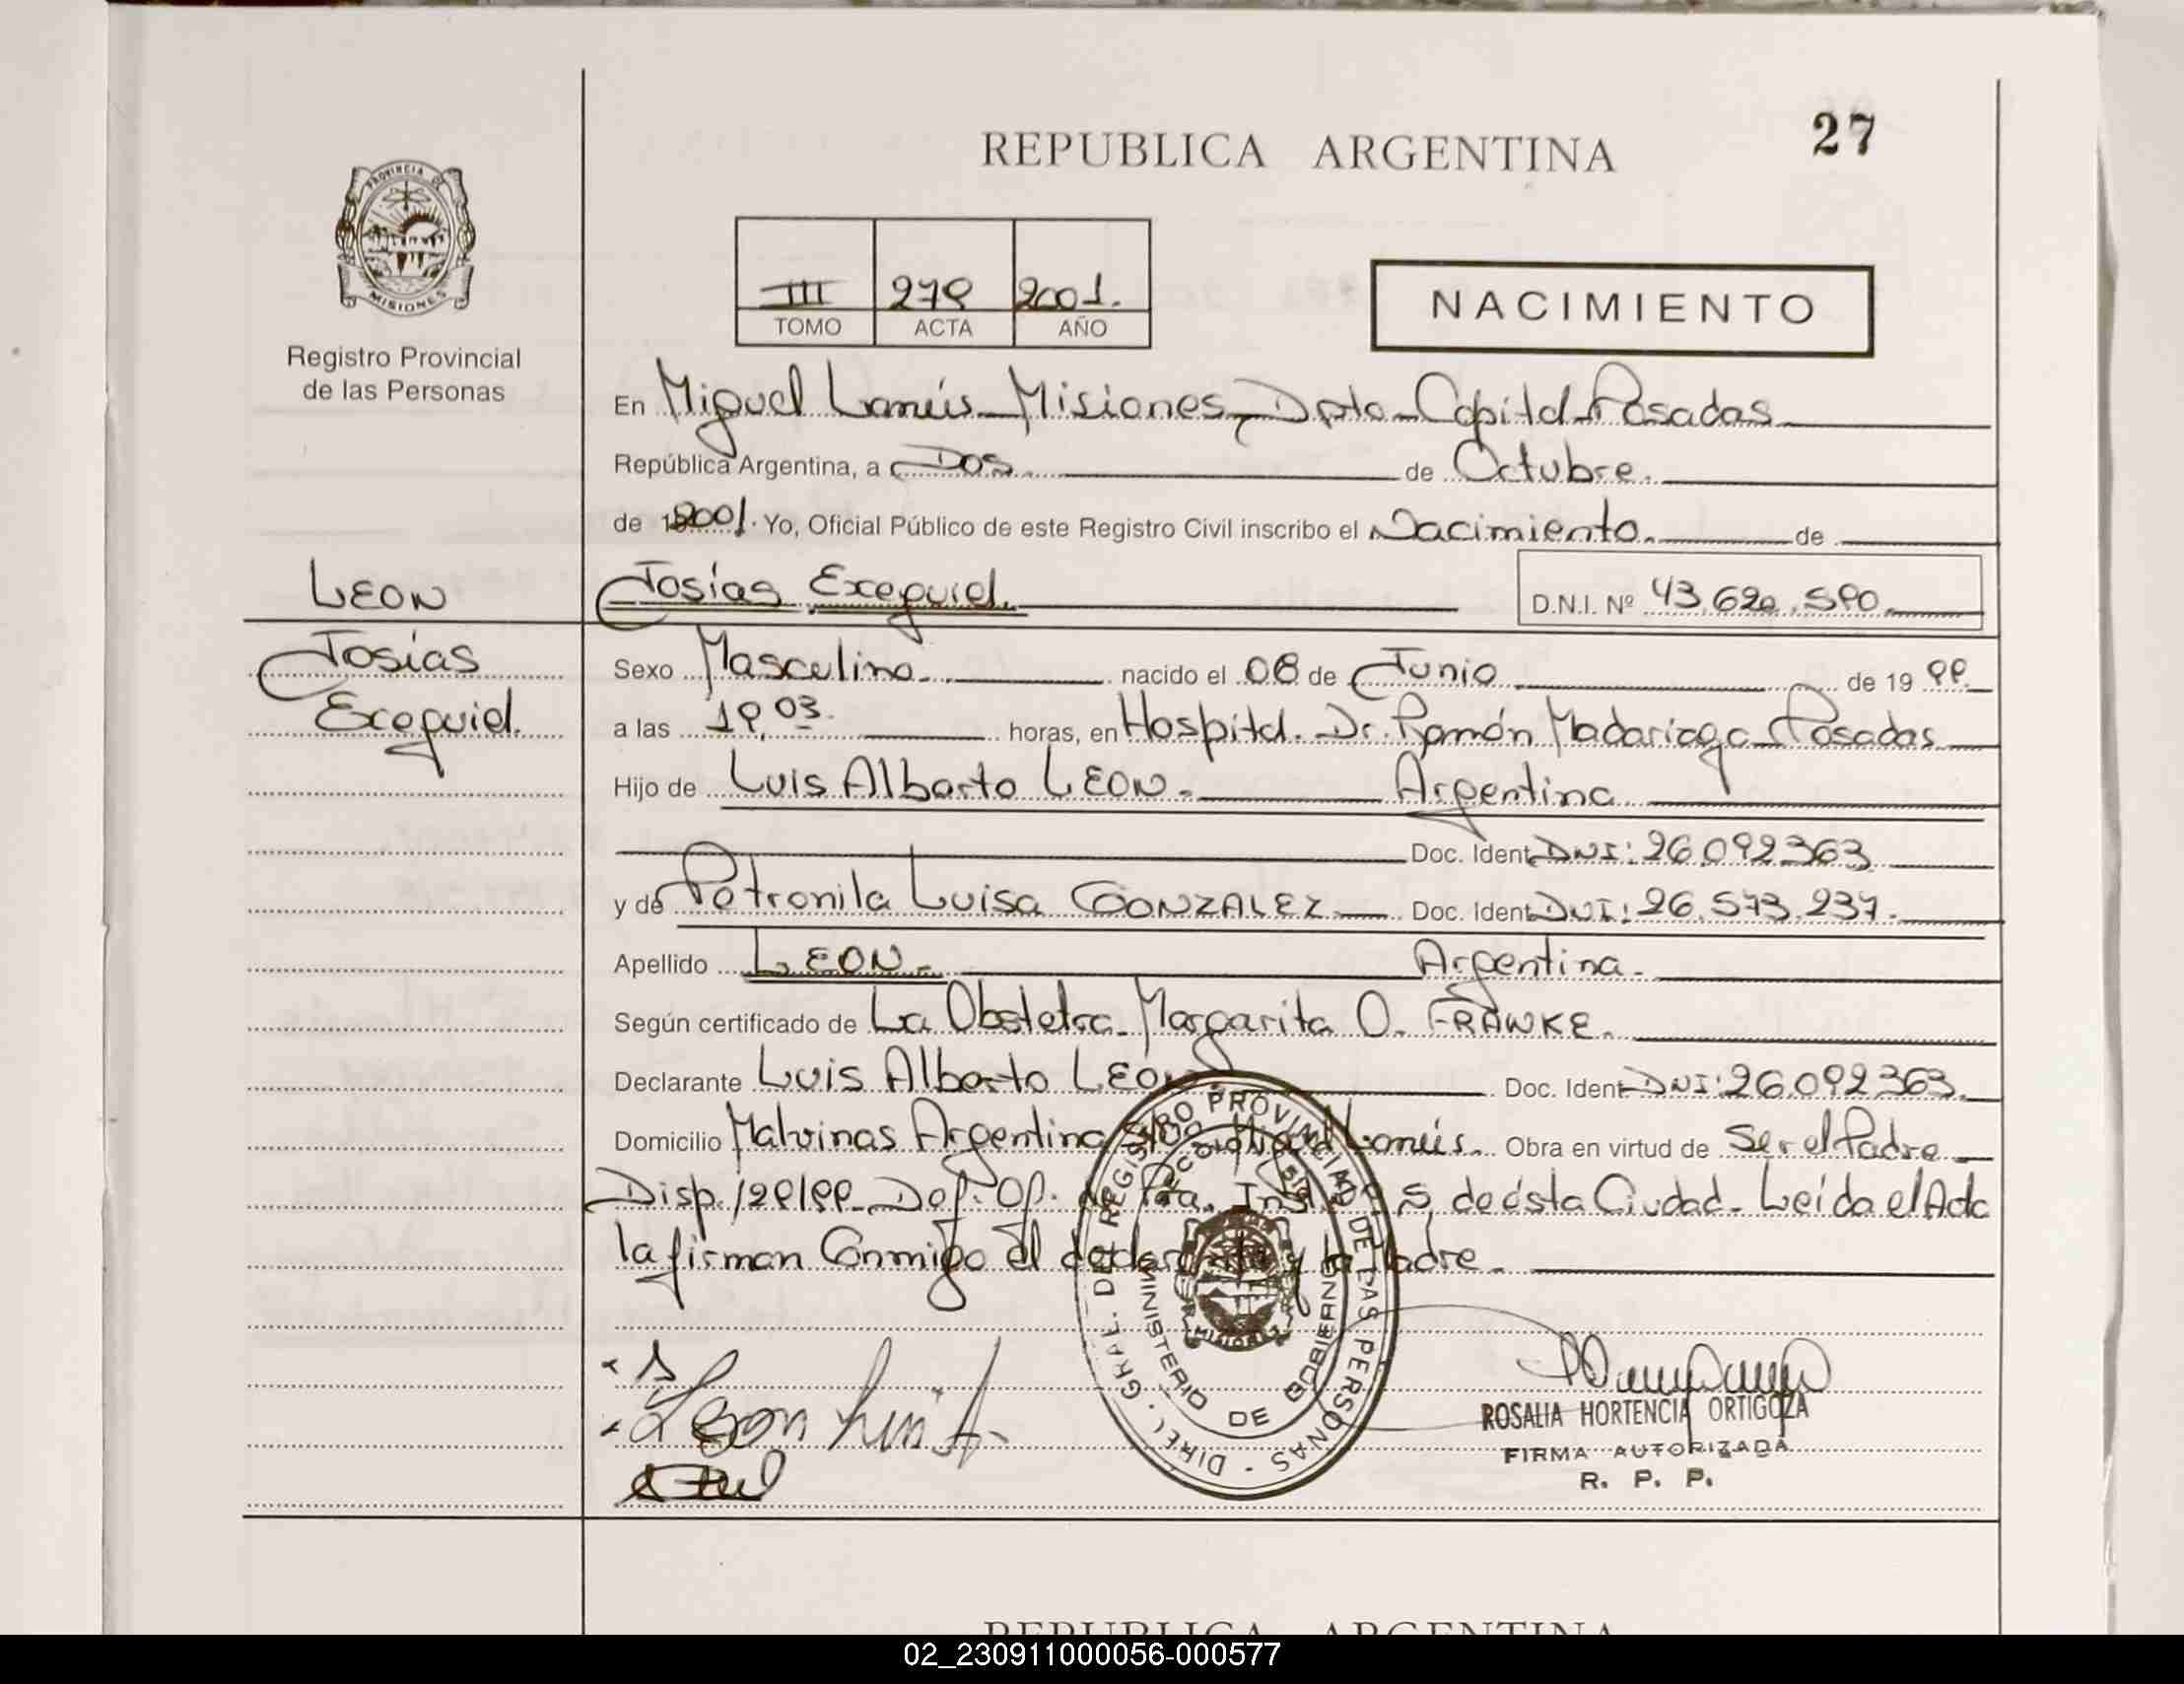 REPUBLICA ARGENTINA
27
PROVINCIA DE
MISIONES
Registro Provincial
de las Personas
III 279 2001.
TOMO ACTA AÑO
NACIMIENTO
En Miguel Lanús Misiones, Dpto-Capital-Posadas
República Argentina, a Dos de Octubre.
de 2001. Yo, Oficial Público de este Registro Civil inscribo el Nacimiento. de
LEON
Josías Exequiel.
D.N.I. Nº 43.620.590
Josías
Exequiel.
Sexo Masculino. nacido el 08 de Junio de 19 99
a las 19,03. horas, en Hospital. Dr. Ramón Madariaga Posadas
Hijo de Luis Alberto LEON. Argentina
Doc. Ident. DNI: 26.092363
y de Petronila Luisa GONZALEZ Doc. Ident. DNI: 26.573.237.
Apellido LEON.- Argentina.
Según certificado de La Obstetra. Margarita O. FRANKE.
Declarante Luis Alberto LEON Doc. Ident. DNI: 26.092363.
Domicilio Malvinas Argentina Miguel Lanús. Obra en virtud de Ser el Padre
Disp. 129/99 Def. Of. de de ésta Ciudad. Leída el Acta
la firman Conmigo el declarante y la Madre.
DIREC. GRAL. DEL REGISTRO PROVINCIAL DE LAS PERSONAS
MINISTERIO DE GOBIERNO
MISIONES
Leon Luis A.
ROSALIA HORTENCIA ORTIGOZA
FIRMA AUTORIZADA
R. P. P.
REPUBLICA ARGENTINA
02_230911000056-000577